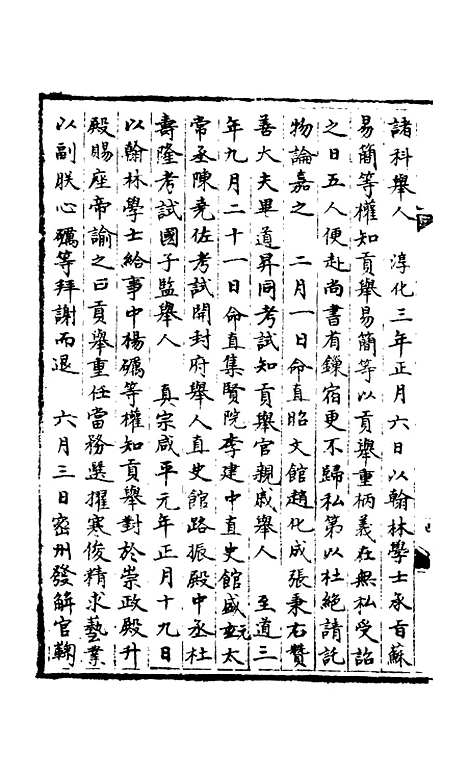 諸科舉人　淳化三年正月六日以翰林學士承旨蘇
易簡等權知貢舉易簡等以貢舉重柄義在無私受詔
之日五人便赴尚書省鏁宿更不歸私第以杜絶請託
物論嘉之　二月一日命直昭文館趙化成張秉右贊
善大夫畢道昇同考試知貢舉官親戚舉人　至道三
年九月二十一日命直集賢院李建中直史館盛元太
常丞陳堯佐考試開封府舉人直史館路振殿中丞杜
壽隆考試國子監舉人　真宗咸平元年正月十九日
以翰林學士給事中楊礪等權知貢舉對於崇政殿升
殿賜座帝諭之曰貢舉重任當務選擢寒俊精求藝業
以副朕心礪等拜謝而退　六月三日密州發解官鞠